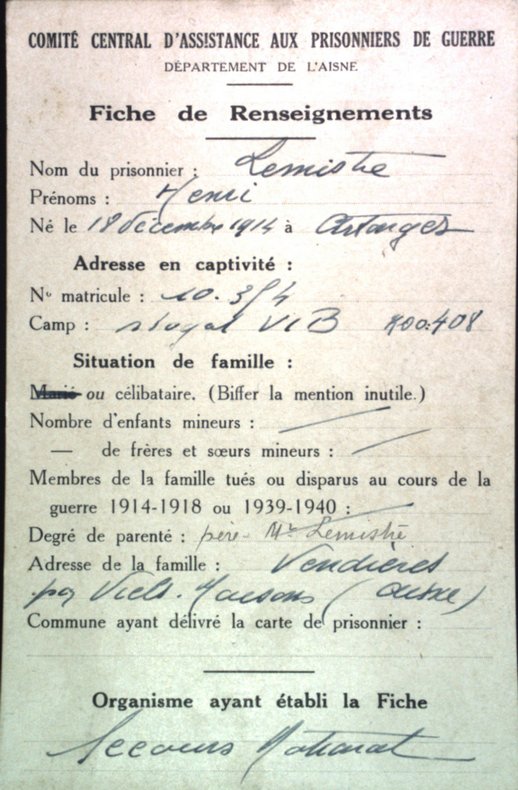 COMITÉ CENTRAL D'ASSISTANCE AUX PRISONNIERS DE GUERRE
DÉPARTEMENT DE L'AISNE
Fiche de Renseignements
Nom du prisonnier : Lemistre
Prénoms : Henri
Né le 18 décembre 1914 à
Adresse en captivité :
No matricule : 10.354
Camp : stalag VI B
Situation de famille :
Marié ou célibataire. (Biffer la mention inutile.)
Nombre d'enfants mineurs : —
— de frères et sœurs mineurs : —
Membres de la famille tués ou disparus au cours de la
guerre 1914-1918 ou 1939-1940 : —
Degré de parenté : père - Mr Lemistre
Adresse de la famille : Vendières
par Viels-Maisons (Aisne)
Commune ayant délivré la carte de prisonnier :
Organisme ayant établi la Fiche
Secours National